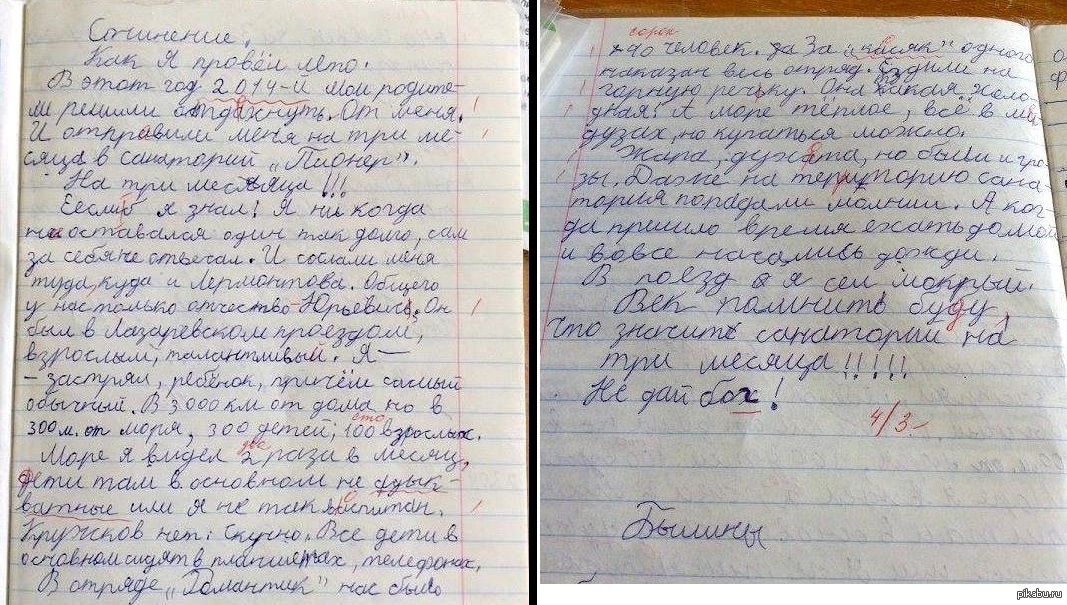 Сочинение.
Как Я провёл лето.
В этот год 2014-й мои родите-
ли решили отдахнуть. От меня.
И отправили меня на три ме-
сяца в санаторий „Пионер".
На три месяца!!!
Еслиб я знал! Я ни когда
не оставался один так долго, сам
за себя не отвечал. И сослали меня
туда, куда и Лермонтова. Общего
у нас только отчество-Юрьевич. Он
был в Лазаревском проездом,
взрослый, талантливый. Я—
- застрял, ребёнок, причём самый
обычный. В 3000 км от дома но в
сто
300 м. от моря, 300 детей, 100 взрослых.
два
Море я видел 2 раза в месяц,
дети там в основном не адык-
ватные или я не так воспитан.
Кружков нет. Скучно. Все дети в
основном сидят в планшетах, телефонах.
В отряде „Романтик" нас было
сорок
40 человек. За „касяк" одного
наказан весь отряд. Ездили на
горную речьку. Она какая холо-
дная! А море тёплое, всё в ме-
дузах, но купаться можно.
Жара, духата, но были и гро-
зы. Даже на територию сана-
тория попадали молнии. А ког-
да пришло время ехать домой
и вовсе начались дожди.
В поезд я сел мокрый.
Век помнить буду,
что значит санаторий на
три месяца!!!!!
Не дай бох!
4/3-
Былины
pikabu.ru